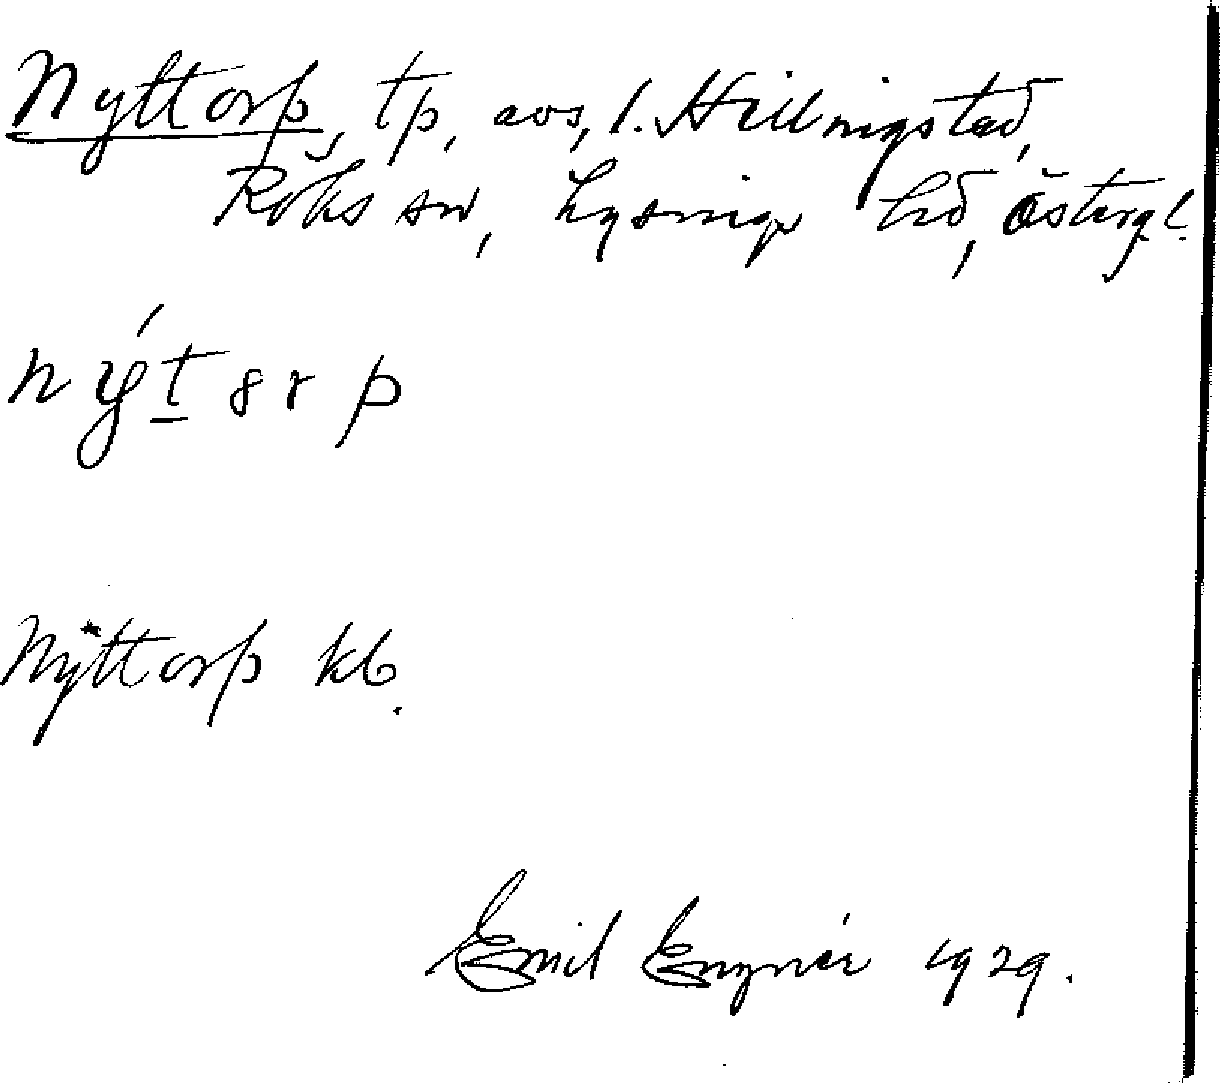 Nyttorp, tp, avs, l. Hillingstad,
Röks sn, Lysings hd, Östergl.
nýtɜrp
Nyttorp kb.
Emil Engnér 1929.